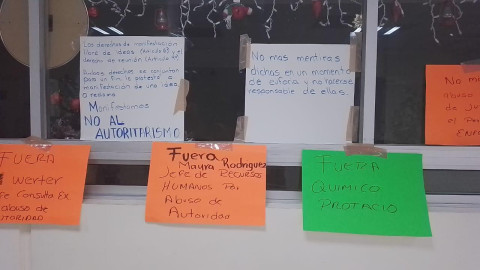 Los derechos de manifestación
libre de ideas (Artículo 6) y el
derecho de reunión (Artículo 9)
Ambos derechos se conjuntan
para un fin, la protesta o
manifestación de una idea
o
Manifestamos
NO AL
AUTORITARISMO
No mas mentiras
dichas en un momento
de euforia y no hacerse
responsable de ellas.
No m
abuso
de Je
el P
EN
FUERA
werter
Jefe Consulta Ex
abuso de
AUTORIDAD
Fuera
Maura Rodriguez
Jefe de Recursos
Humanos Por
Abuso de
Autoridad
FUERA
QUIMICO
PILOTACIO